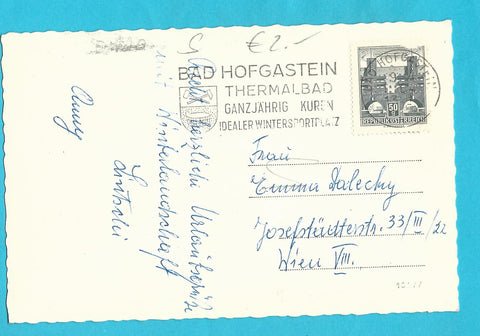 € 2.-
BAD HOFGASTEIN
THERMALBAD
GANZJÄHRIG KUREN
IDEALER WINTERSPORTPLATZ
BAD HOFGASTEIN
50
REPUBLIK ÖSTERREICH
Recht herzliche Urlaubsgrüße
und Winterlandschaft
Anny
Frau
Emma Dalecky
Josefstädterstr. 33/III/22
Wien VIII.